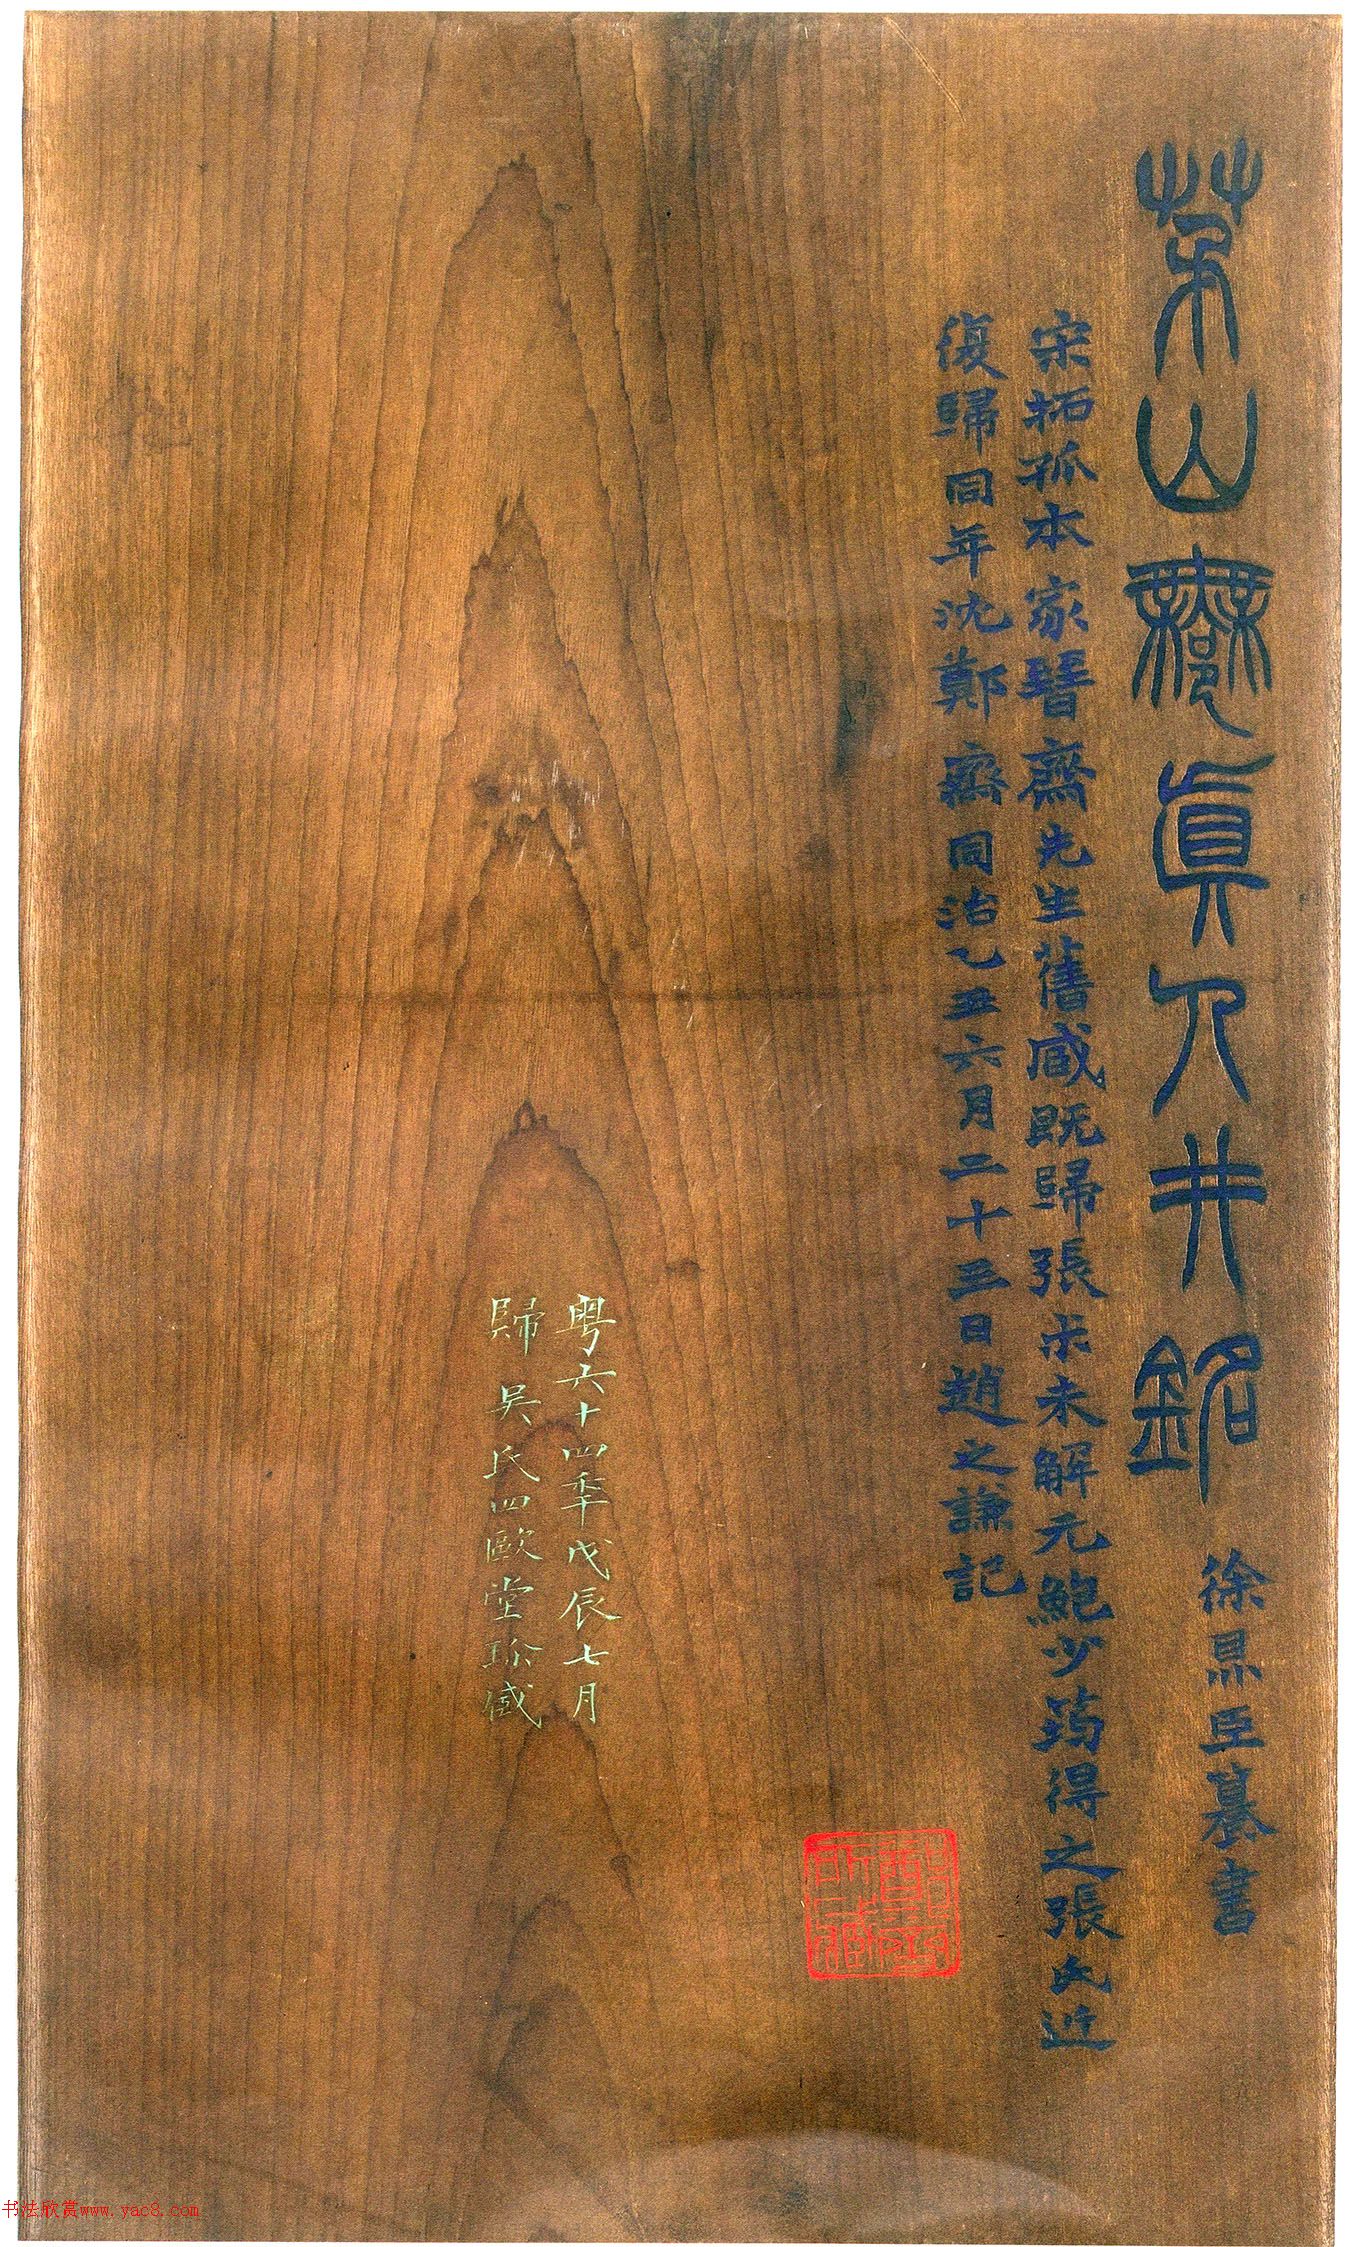 茅山無真人井銘
徐鼎臣篆書
宋拓孤本家晉齋先生舊臧既歸張未未解元鮑少筠得之張氏近
復歸同年沈鄭齋同治乙丑六月二十三日趙之謙記
粤六十四季戊辰七月
歸吳氏四歐堂珍臧
书法欣赏www.yac8.com